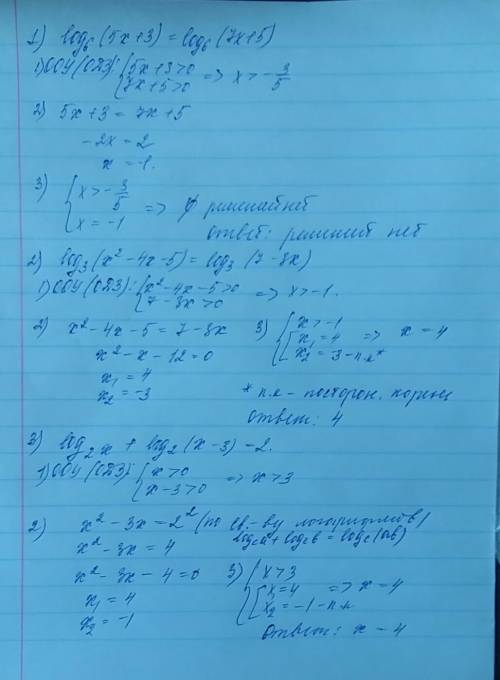 1) log₆(5x+3) = log₆(7x+5)
1) ООУ(ОДЗ): {5x+3>0 7x+5>0 => x > -3/5
2) 5x+3 = 7x+5
-2x = 2
x = -1.
3) {x > -3/5 x = -1 => ∅ решений нет
ответ: решений нет
2) log₃(x²-4x-5) = log₃(7-8x)
1) ООУ(ОДЗ): {x²-4x-5>0 7-8x>0 => x>-1.
2) x²-4x-5 = 7-8x
x²-x-12=0
x₁ = 4
x₂ = -3
3) {x>-1 [x₁=4 x₂=-3-п.к* => x = 4
* п.к - посторон. корень
ответ: 4
3) log₂x + log₂(x-3) = 2.
1) ООУ(ОДЗ): {x>0 x-3>0 => x>3
2) x²-3x = 2² (по св.-ву логарифмов/
log_c a + log_c b = log_c(ab)
x²-3x = 4
x²-3x-4=0
x₁ = 4
x₂ = -1
3) {x>3 [x=4 x₂=-1-п.к => x=4
ответ: x-4